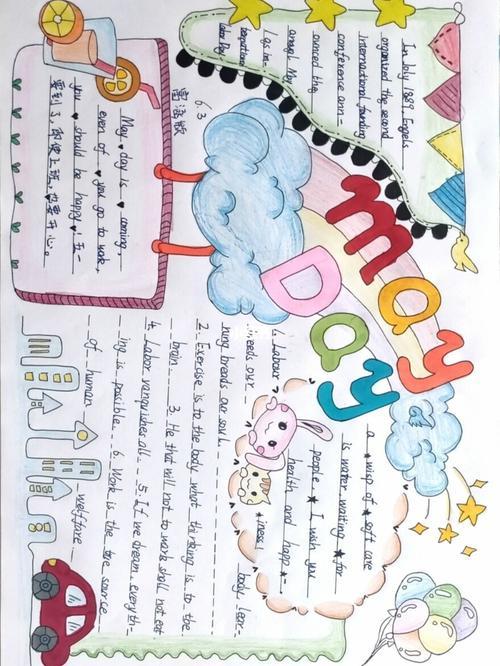 May
Day
In July 1889, Engels
organized the second
International founding
conference ann-
ounced the
annual May
1 as in
Labor Day.
6.3
May ♥ day is ♥ coming,
even of ♥ you go to work,
you ♥ should be happy ♥ 五一
要到了,即使上班,也要开心。
a ★ wisp of ★ soft care
is water waiting ★ for
people, ★ I wish you
health and happ-
★ iness!
1. Labour
body, lear-
ning breeds our soul.
2. Exercise is to the body what thinking is to the
brain 3. He that will not to work shall not eat
4. Labor vanquishes all. 5. If we dream, everyth-
ing is possible. 6. Work is the true source
of human welfare